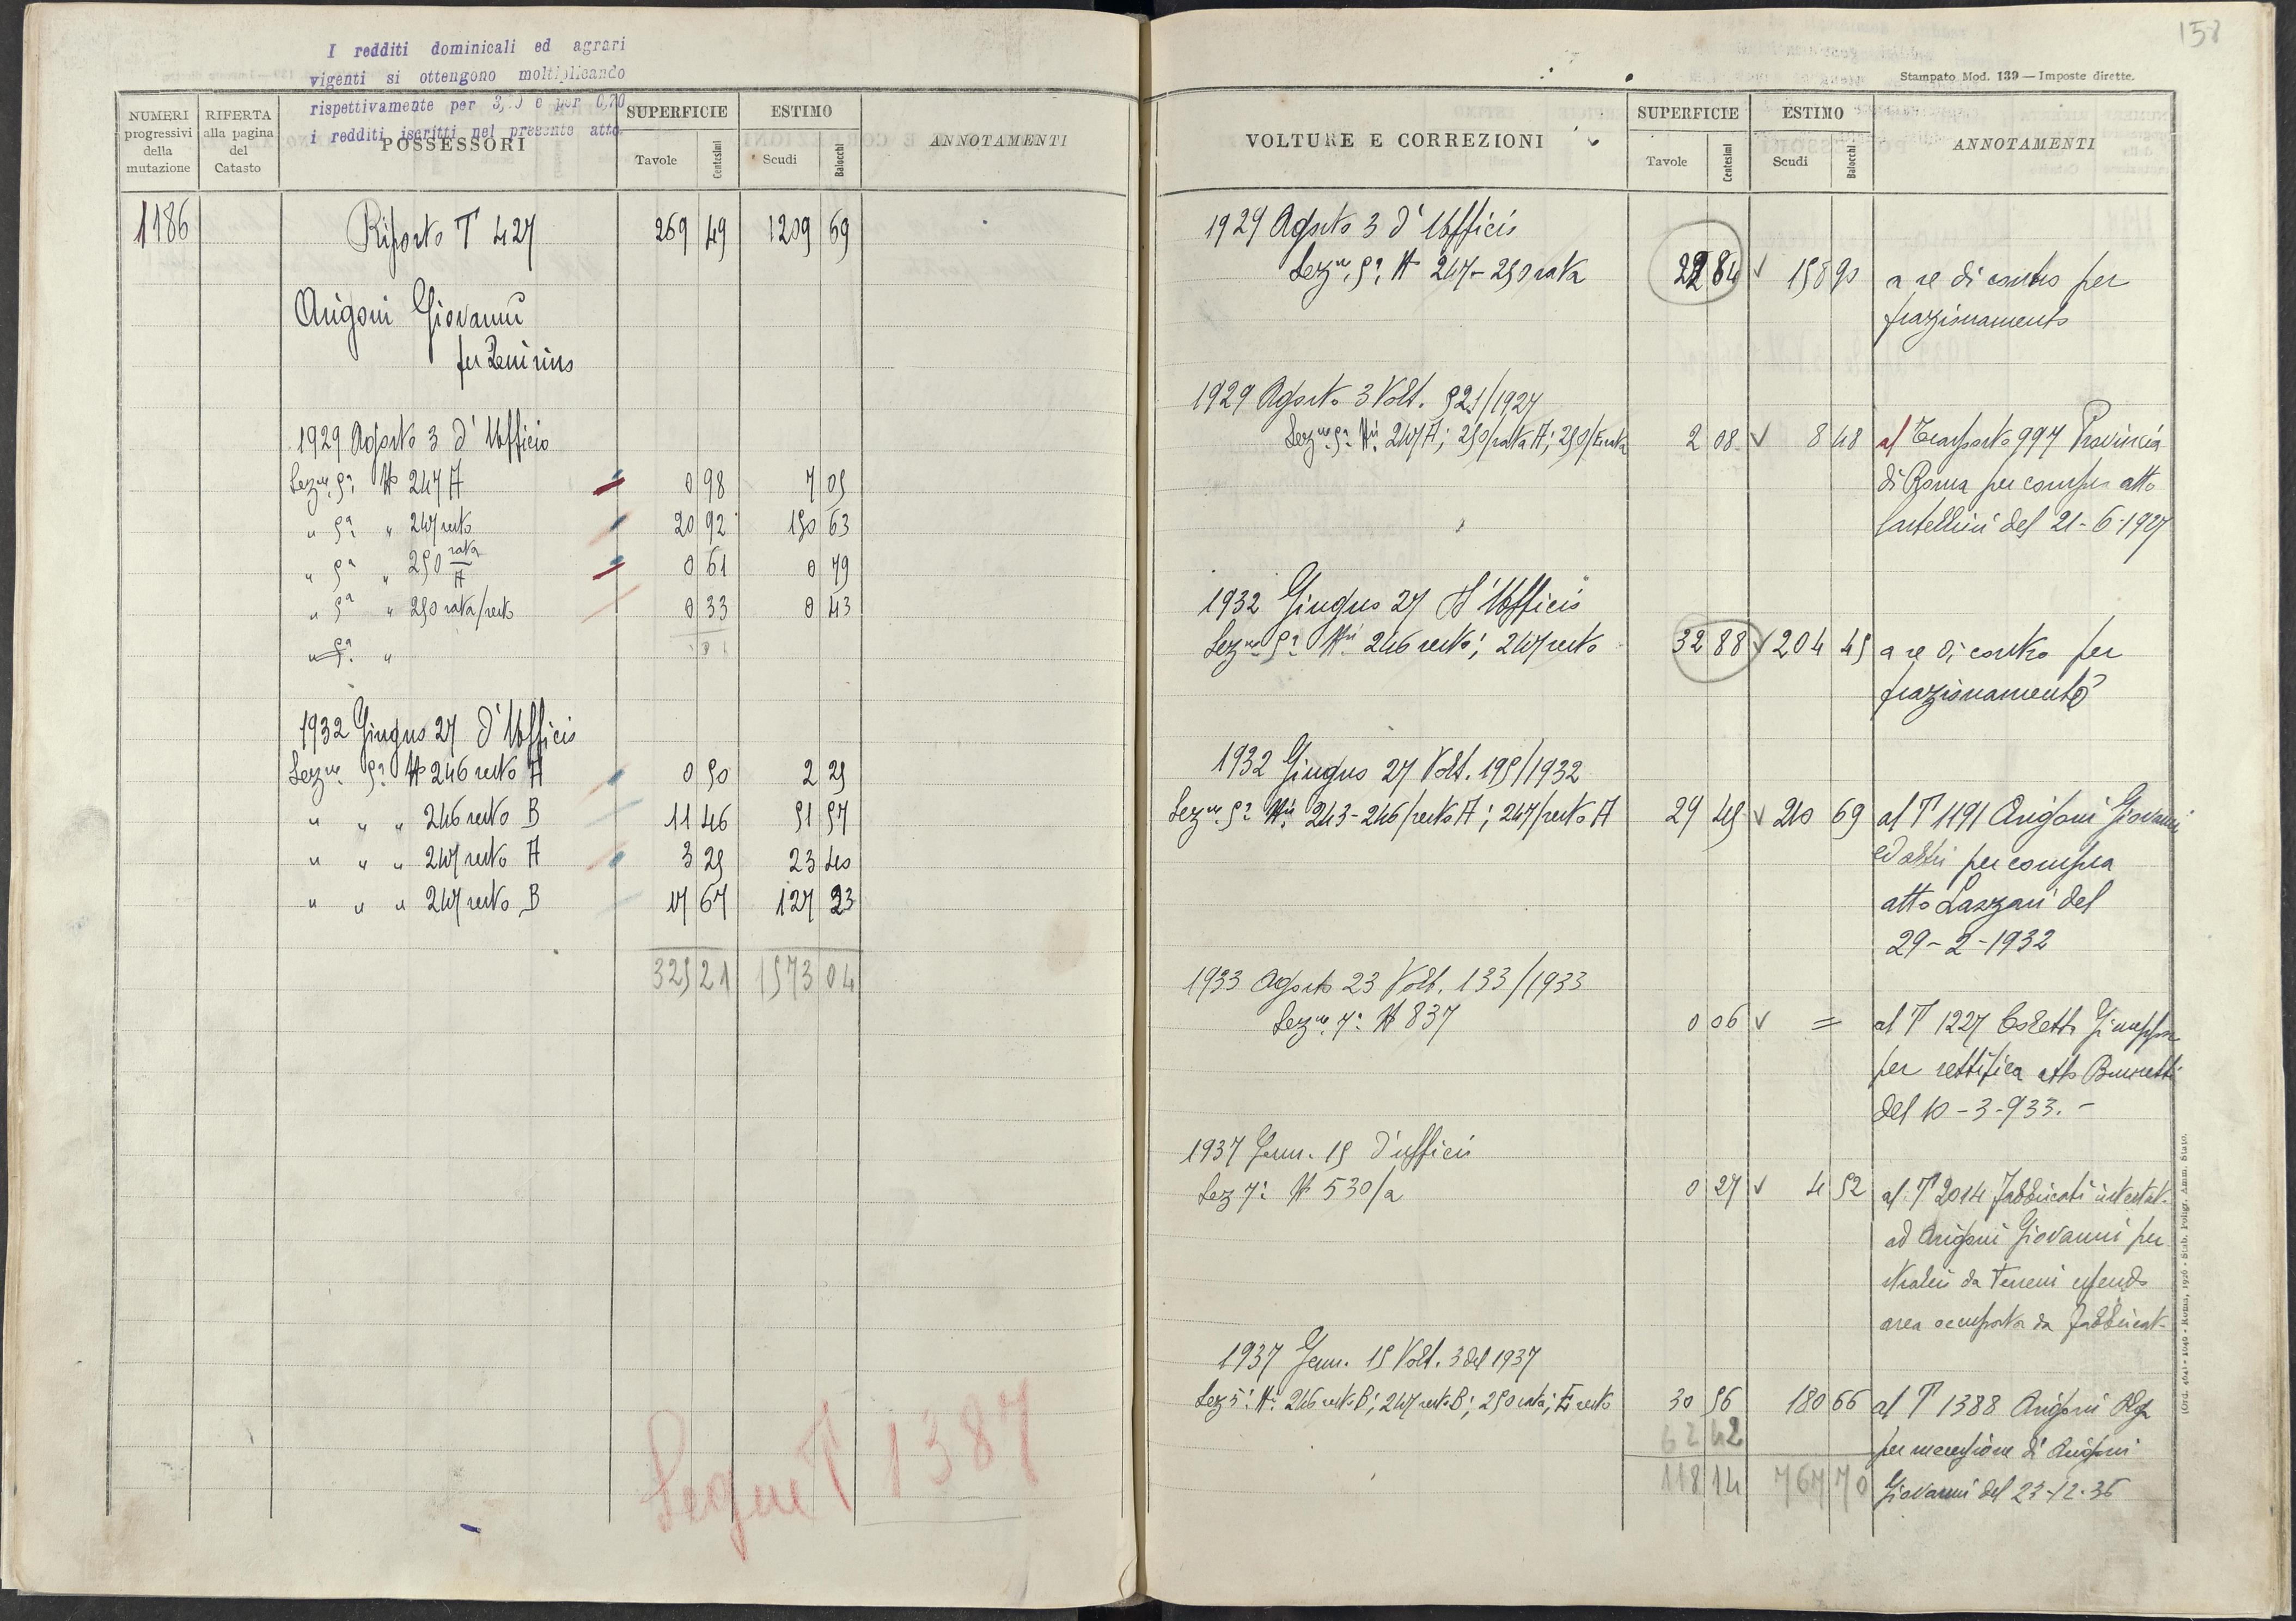 I redditi dominicali ed agrari
vigenti si ottengono moltiplicando
rispettivamente per 3,20 e per 0,70
i redditi iscritti nel presente atto.
NUMERI progressivi della mutazione
RIFERTA alla pagina del Catasto
POSSESSORI
SUPERFICIE
Tavole Centesimi
ESTIMO
Scudi Baiocchi
ANNOTAMENTI
1186 Riporto T 427 269 49 1209 69
Arigoni Giovanni
fu Zeni rino
1929 Agosto 3 d'Ufficio
Sez.ne 5ª N 247 A 0 98 7 05
" 5ª " 247 resto 20 92 150 63
" 5ª " 250 rata/A 0 61 0 79
" 5ª " 250 rata/resto 0 33 0 43
" 5ª "
1932 Giugno 27 d'Ufficio
Sez.ne 5ª N 246 resto A 0 50 2 25
" " " 246 resto B 11 46 51 57
" " " 247 resto A 3 25 23 40
" " " 247 resto B 17 67 127 23
325 21 1573 04
Segue T 1387
158
Stampato Mod. 139 — Imposte dirette.
VOLTURE E CORREZIONI
SUPERFICIE
Tavole Centesimi
ESTIMO
Scudi Baiocchi
ANNOTAMENTI
1929 Agosto 3 d'Ufficio
Sez.ne 5ª N 247 - 250 rata 22 84 158 90 a se di contro per
frazionamento
1929 Agosto 3 Volt. 521/1927
Sez.ne 5ª Ni 247 A; 250/rata A; 250/E rata 2 08 8 48 al Trasporto 997 Provincia
di Roma per compra atto
Castellini del 21-6-1927
1932 Giugno 27 d'Ufficio
Sez.ne 5ª Ni 246 resto; 247 resto 32 88 204 45 a se di contro per
frazionamento
1932 Giugno 27 Volt. 195/1932
Sez.ne 5ª Ni 243 - 246/resto A; 247/resto A 29 45 210 69 al T 1191 Arigoni Giovanni
ed altri per compra
atto Lazzari del
29-2-1932
1933 Agosto 23 Volt. 133/1933
Sez.ne 7ª N 837 0 06 = al T 1227 Coletti Giuseppe
per rettifica atto
del 10-3-933.-
1937 Genn. 15 d'ufficio
Sez 7ª N 530/a 0 27 4 52 al T 2014 fabbricati intestat.
ad Arigoni Giovanni per
stralcio da Terreni essendo
area occupata da fabbricat.
1937 Genn. 15 Volt. 3 del 1937
Sez 5ª Ni 246 resto B; 247 resto B; 250 rata; E resto 30 56 180 66 al T 1388 Arigoni
62 42
per successione di Arigoni
118 14 767 70 Giovanni del 23-12-36
(Ord. 404) - 1940 - Roma, 1926 - Stab. Poligr. Amm. Stato.